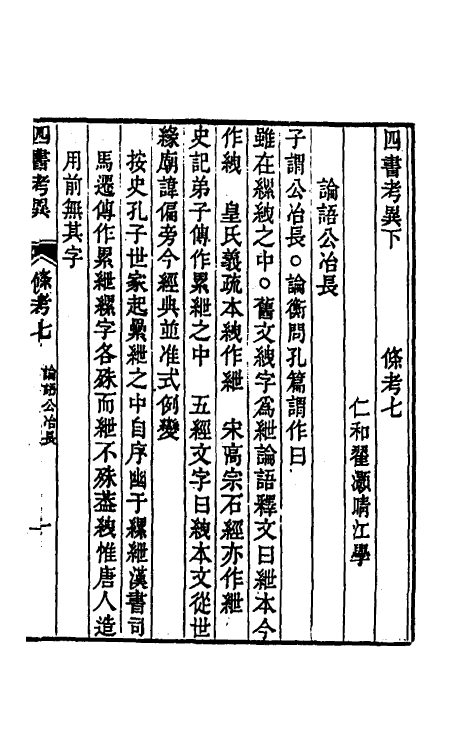 四書考異下　　　條考七
仁和翟灝晴江學
論語公冶長
子謂公冶長○論衡問孔篇謂作曰
雖在縲絏之中○舊文絏字為紲論語釋文曰紲本今
作絏　皇氏義疏本絏作紲　宋高宗石經亦作紲
史記弟子傳作累紲之中　五經文字曰絏本文從世
緣廟諱偏旁今經典並准式例變
按史孔子世家起纍紲之中自序幽于縲紲漢書司
馬遷傳作累紲縲字各殊而紲不殊蓋絏惟唐人造
用前無其字
四書考異　條考七　論語公冶長　一